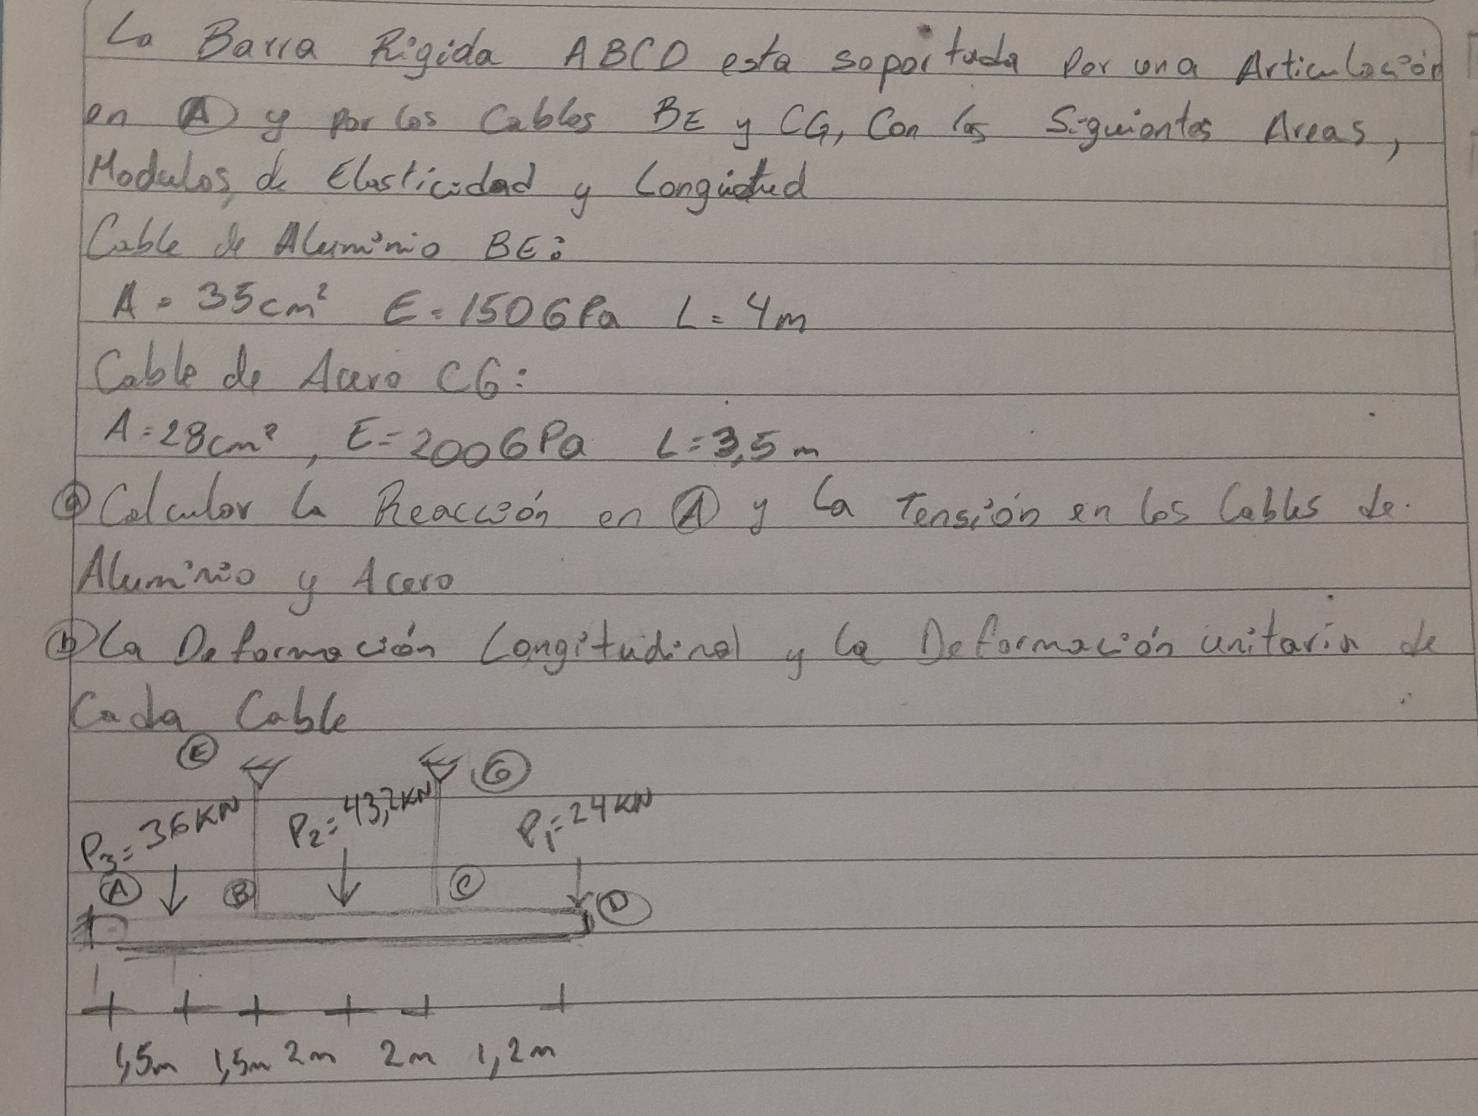 La Barra Rigida ABCD esta soportada Por una Articulación
en Ⓐ y por los Cables BE y CG, Con las Siguientes Areas,
Modulos de Elasticidad y Longitud
Cable de Aluminio BE:
A = 35cm² E = 150GPa L = 4m
Cable de Acero CG:
A = 28cm², E = 200GPa L = 3,5m
ⓐ Calcular la Reacción en Ⓐ y la Tensión en los Cables de
Aluminio y Acero
ⓑ La Deformación Longitudinal y la Deformación unitaria de
Cada Cable
Ⓔ Ⓖ
P₃ = 36KN P₂ = 43,2KN P₁ = 24KN
Ⓐ Ⓑ Ⓒ Ⓓ
1,5m 1,5m 2m 2m 1,2m